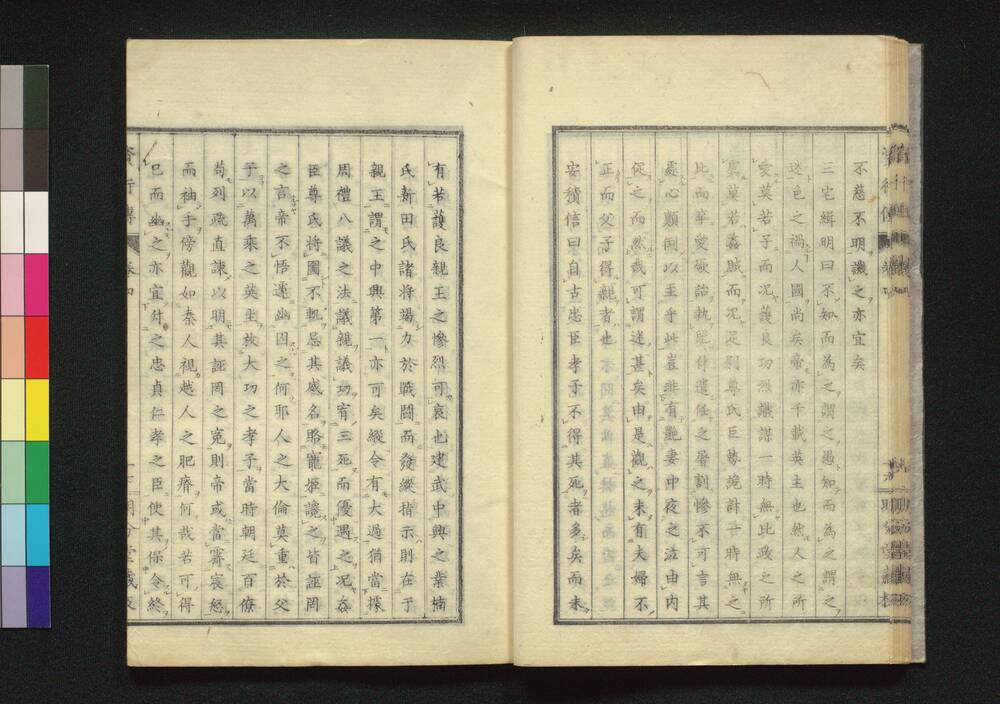 不慈不明譏之亦宜矣
三宅緝明曰不知而為之謂之愚知而為之謂之
迷色之禍人國尚矣帝亦千載英主也然人之所
愛莫若子而況護良功烈識謀一時無比政之所
莫若蟊賊而況足利尊氏巨勢詭計一時無之
比而卒愛厥詒執罪付遣任之屠割慘不可言其
處心顛倒以至乎此豈非有艷妻中夜之泣由内
促之而然哉可謂迷甚矣由是觀之未有夫婦不
正而父子得親者也
安積信曰自古忠臣孝子不得其死者多矣而未
有若護良親王之慘烈可哀也建武中興之業楠
氏新田氏諸將竭力於戰鬪而發縱指示則在于
親王謂之中興第一亦可矣縱令有大過猶當據
周禮八議之法議親議功宥三死而優遇之況姦
臣尊氏將圖不軌忌其威名賂寵姬讒之皆誣罔
之言帝不悟遽幽囚之何耶人之大倫莫重於父
子以萬乘之英主放大功之孝子當時朝廷百僚
苟列疏直諫以明其誣罔之冤則帝或當霽哀怒
而袖手傍觀如秦人視越人之肥瘠何哉若可得
已而幽之亦宜付之忠貞仁孝之臣使其保令終